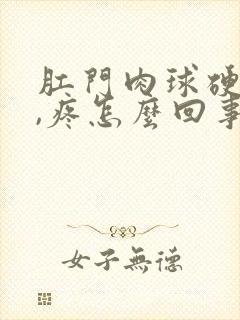 肛門肉球硬
,疼怎麼回事
女子無德